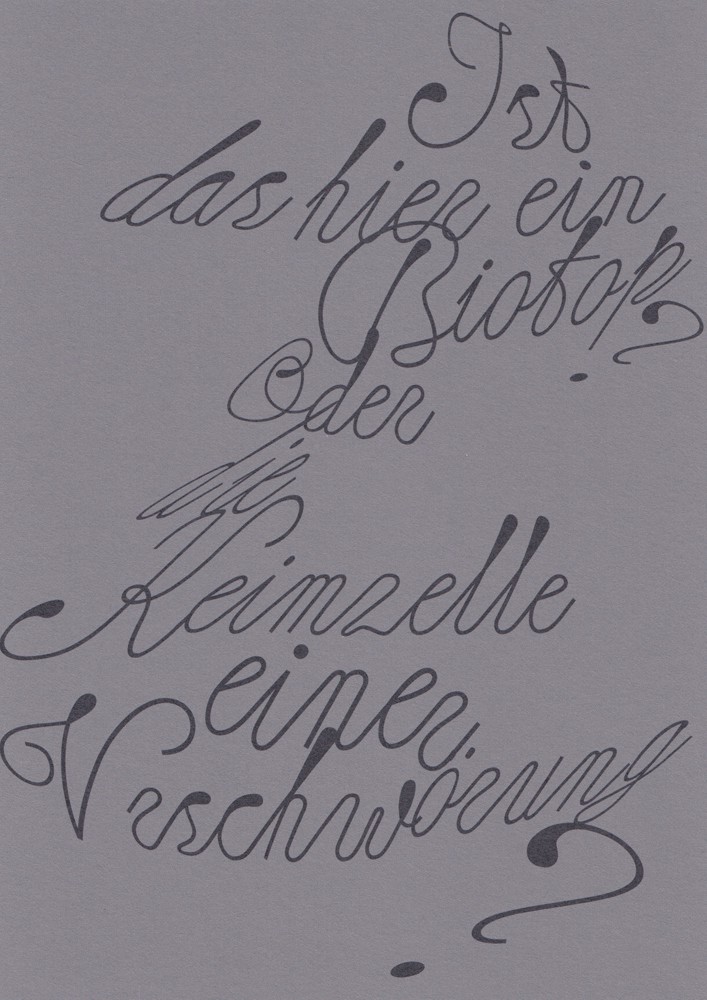 Ist
das hier ein
Biotop?
Oder
die
Keimzelle
einer
Vrschwörung
?